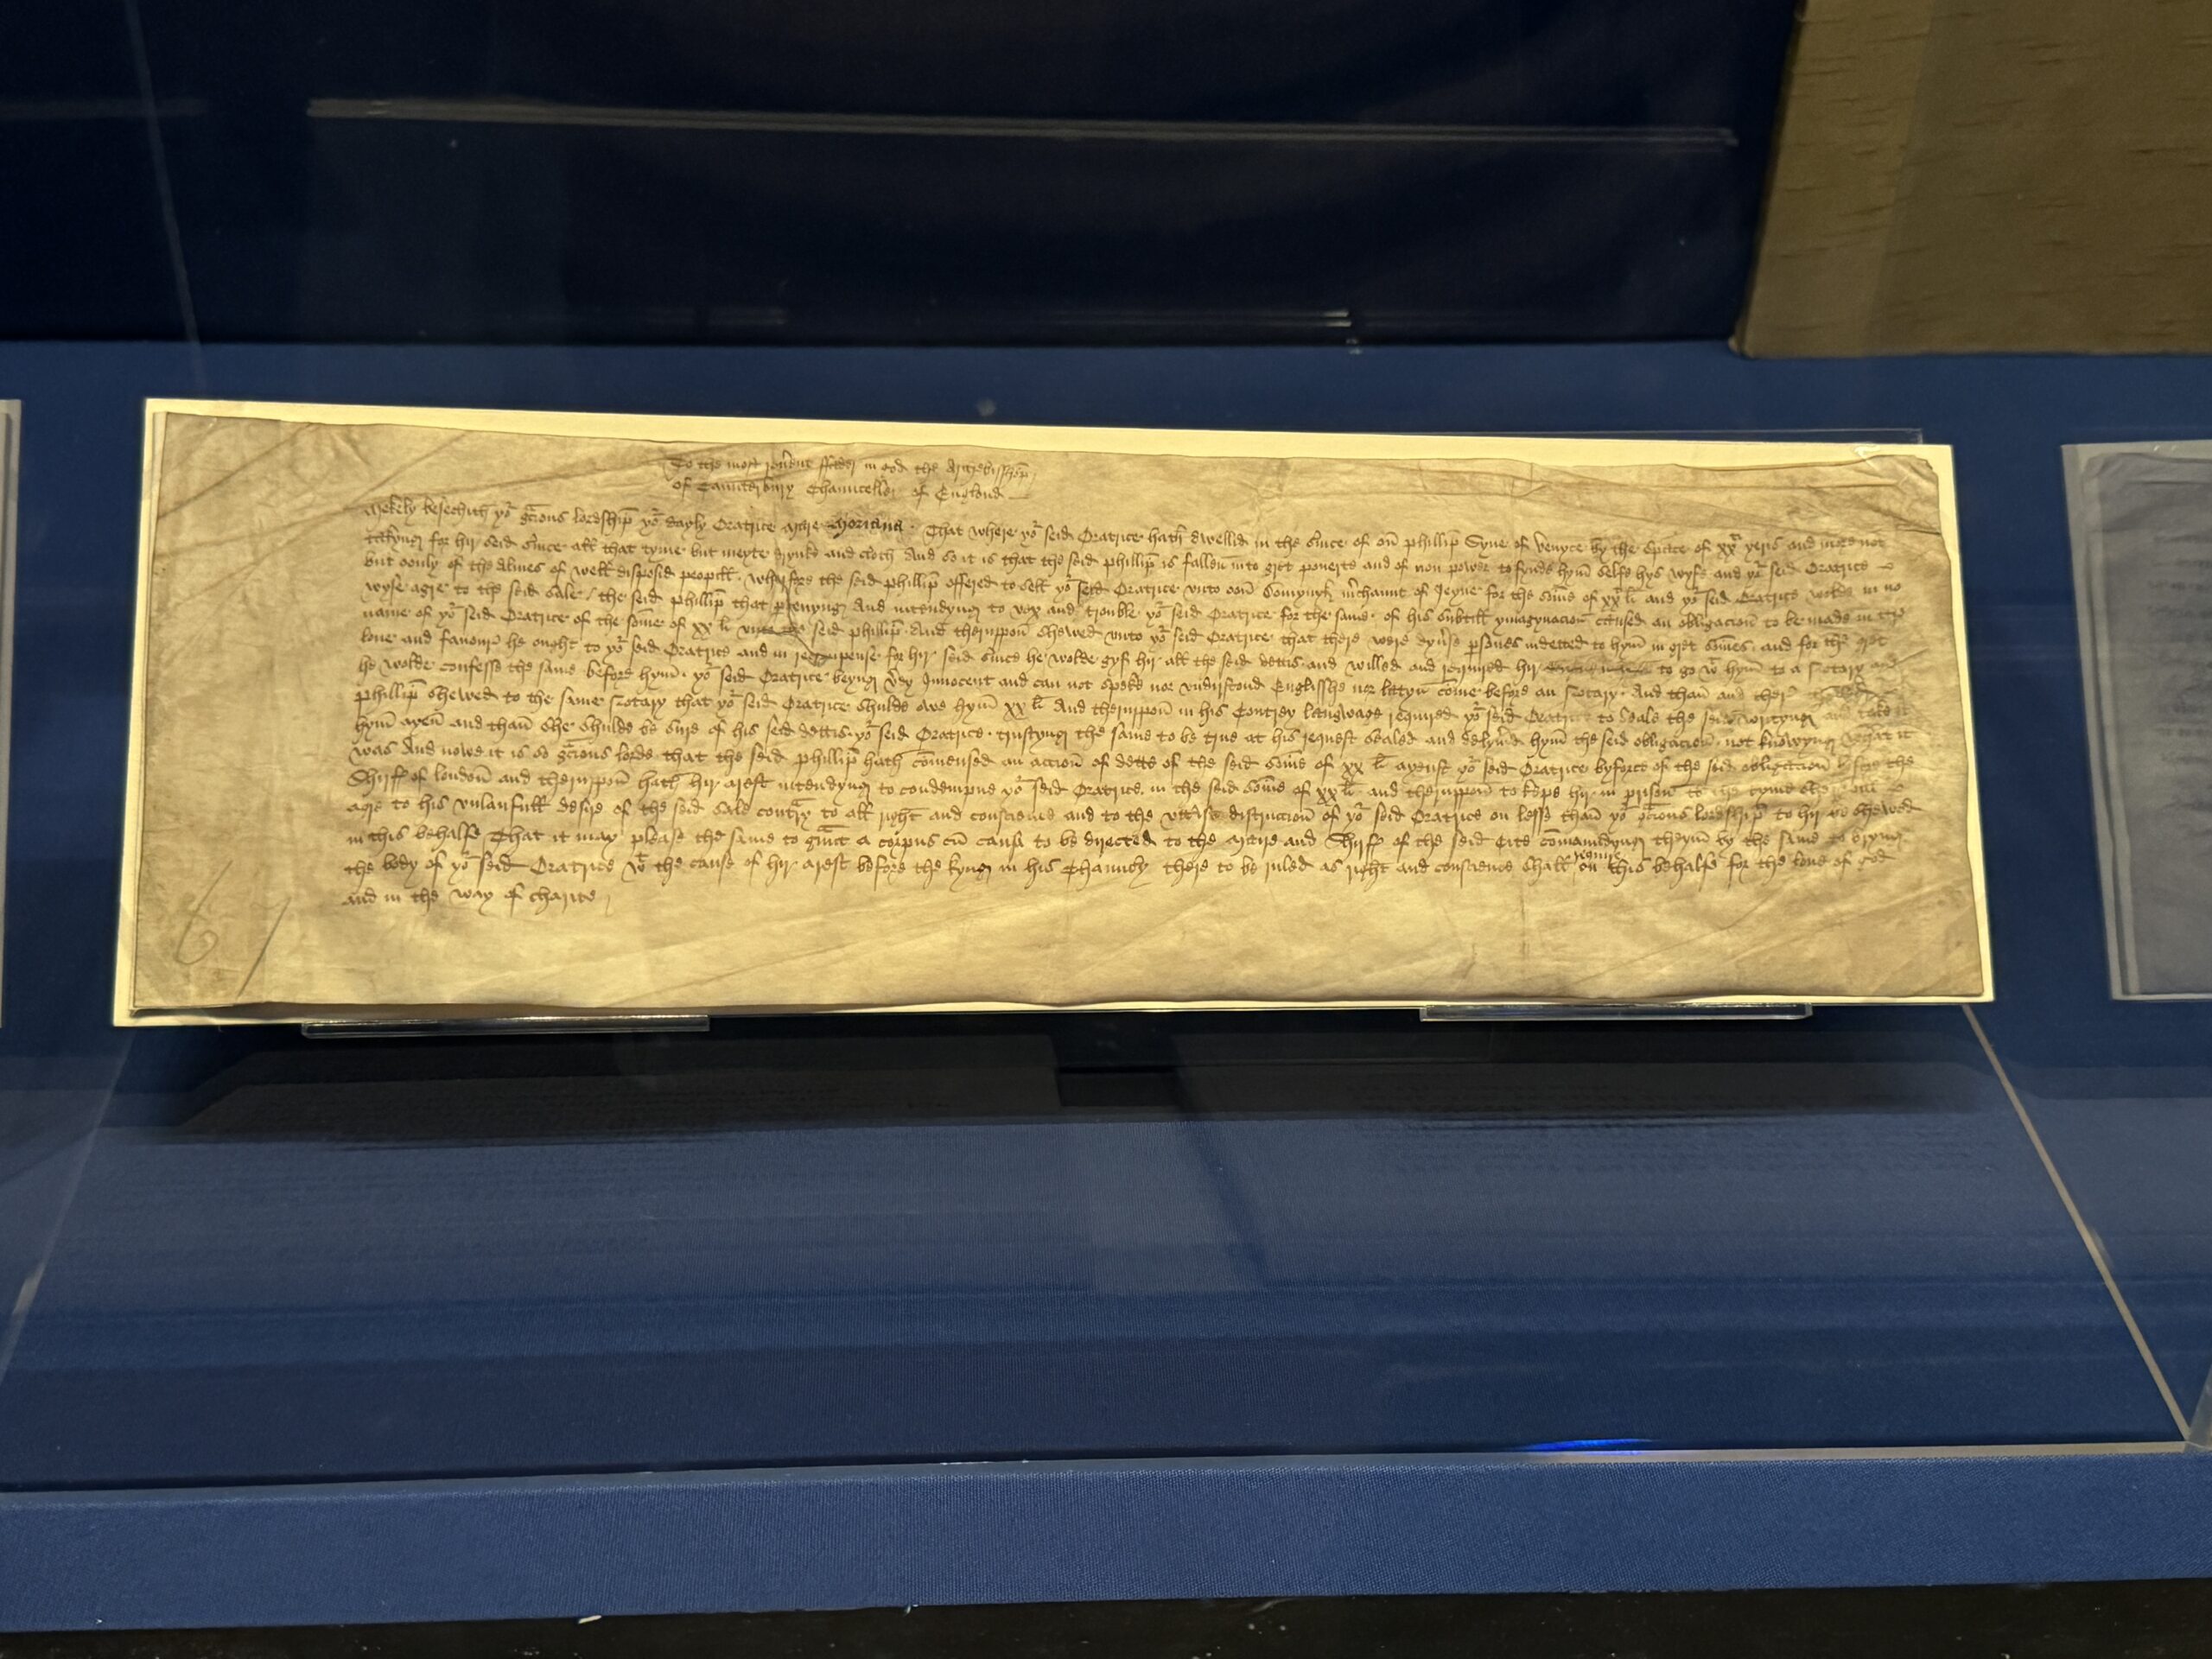 To the most reu'ent ffader in god the Archebisshop
of Caunterbury Chaunceller of England
Mekely besechith yor g'cious lordship yor dayly Oratrice Marie Moriana . That where yor seid Oratrice hath dwellid in the s'uice of on Phillip Syne of Venyce by the space of xx yeris and more not
takyng for hir seid s'uice all that tyme but meyte drynke and cloth And so it is that the seid Phillip is fallen into gret pouerte and of non power to fynde hym selfe hys wyfe and yor seid Oratrice
but oonly of the almes of well disposid peopill . wherfore the seid Phillip offered to sell yor seid Oratrice vnto oon Domynyk m'chaunt of Jeyne for the some of xx li and yor seid Oratrice wolde in no
wyse agre to the seid sale / the seid Phillip that p'ceyuyng And intendyng to vex and trouble yor seid Oratrice for the same . of his subtill ymagynacion caused an obligacion to be made in the
name of yor seid Oratrice of the some of xx li vnto the seid Phillip . And theruppon shewed vnto yor seid Oratrice that there were dyu'se p'sones indetted to hym in gret somes . and for the gret
loue and fauour he ought to yor seid Oratrice and in recompense for hir seid s'uice he wolde gyf hir all the seid dettis . and willed and required hir to go wt hym to a scotary and
he wolde confesse the same before hym . yor seid Oratrice beyng very Innocent and can not speke nor vndirstond Englisshe nor latyn come before an scotary . And than and ther
Phillip shewed to the same scotary that yor seid Oratrice shulde owe hym xx li And theruppon in his Contrey langwage required yor seid Oratrice to seale the seid writyng and take it
hym ayen and than she shulde be sure of his seid dettis . yor seid Oratrice . trustyng the same to be true at his request sealed and delyu'd hym the seid obligacion . not knowyng what it
was And nowe it is so g'cious lorde that the seid Phillip hath comensed an accion of dette of the seid some of xx li ayenst yor seid Oratrice byforce of the seid obligacion before the
Shirf of london and theruppon hath hir arest intendyng to condempne yor seid Oratrice in the seid some of xx li and theruppon to kepe hir in prison to the tyme she will
agre to his vnlaufull desire of the seid sale contr'y to all right and conscience and to the vtt'ist distruccion of yor seid Oratrice on lesse than yor g'cious lordship to hir be shewed
in this behalfe That it may please the same to g'unt a corpus cu' causa to be directed to the Maire and Shirf of the seid Cite comaundyng theym by the same to bryng
the body of yor seid Oratrice wt the cause of hir arest before the kyng in his Chauncery there to be ruled as right and conscience shall require on this behalfe for the loue of god
and in the way of charite
67